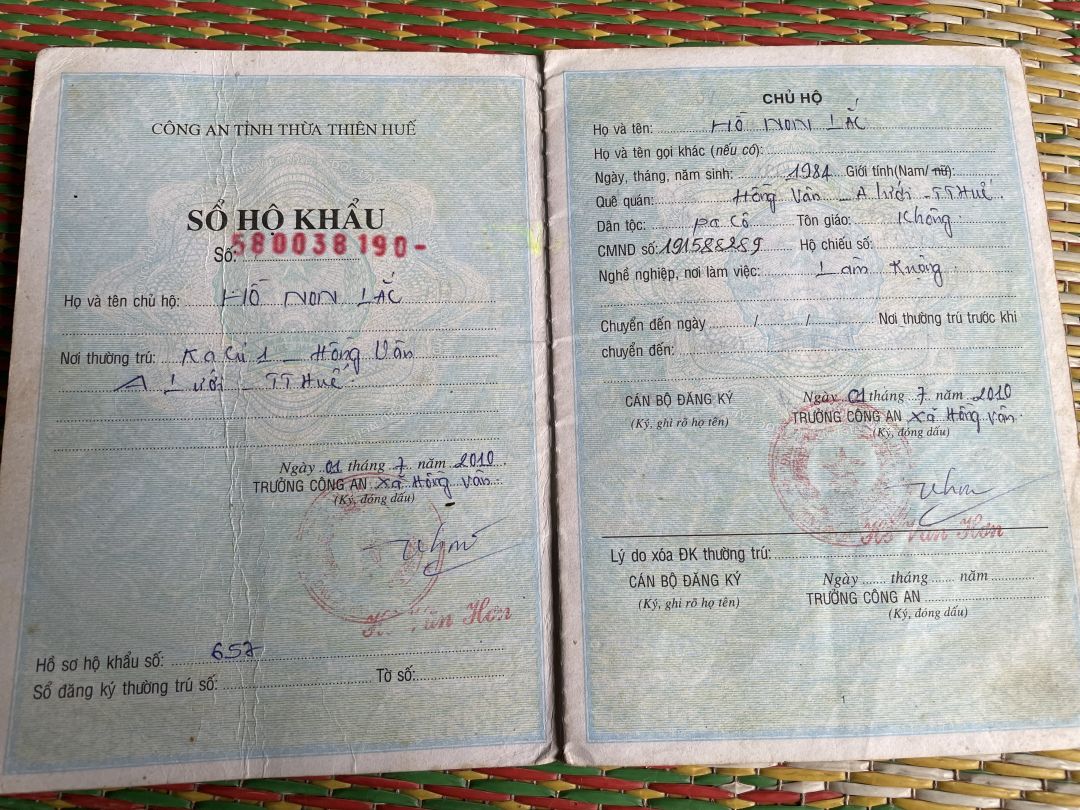 CÔNG AN TỈNH THỪA THIÊN HUẾ
SỔ HỘ KHẨU
Số: 580038190-
Họ và tên chủ hộ: HỒ NON LẮC
Nơi thường trú: Ka Cú 1 _ Hồng Vân
A Lưới _ TT Huế
Ngày 01 tháng 7 năm 2010
TRƯỞNG CÔNG AN Xã Hồng Vân
(Ký, đóng dấu)
Hồ Văn Hơn
Hồ sơ hộ khẩu số: 657
Sổ đăng ký thường trú số: Tờ số:
CHỦ HỘ
Họ và tên: HỒ NON LẮC
Họ và tên gọi khác (nếu có):
Ngày, tháng, năm sinh: 1984 Giới tính(Nam/ nữ):
Quê quán: Hồng Vân _ A Lưới _ TT Huế
Dân tộc: Pa Cô Tôn giáo: Không
CMND số: 191588289 Hộ chiếu số:
Nghề nghiệp, nơi làm việc: Làm Ruộng
Chuyển đến ngày / / Nơi thường trú trước khi
chuyển đến:
CÁN BỘ ĐĂNG KÝ Ngày 01 tháng 7 năm 2010
(Ký, ghi rõ họ tên) TRƯỞNG CÔNG AN Xã Hồng Vân
(Ký, đóng dấu)
Hồ Văn Hơn
Lý do xóa ĐK thường trú:
CÁN BỘ ĐĂNG KÝ Ngày tháng năm
(Ký, ghi rõ họ tên) TRƯỞNG CÔNG AN
(Ký, đóng dấu)
1